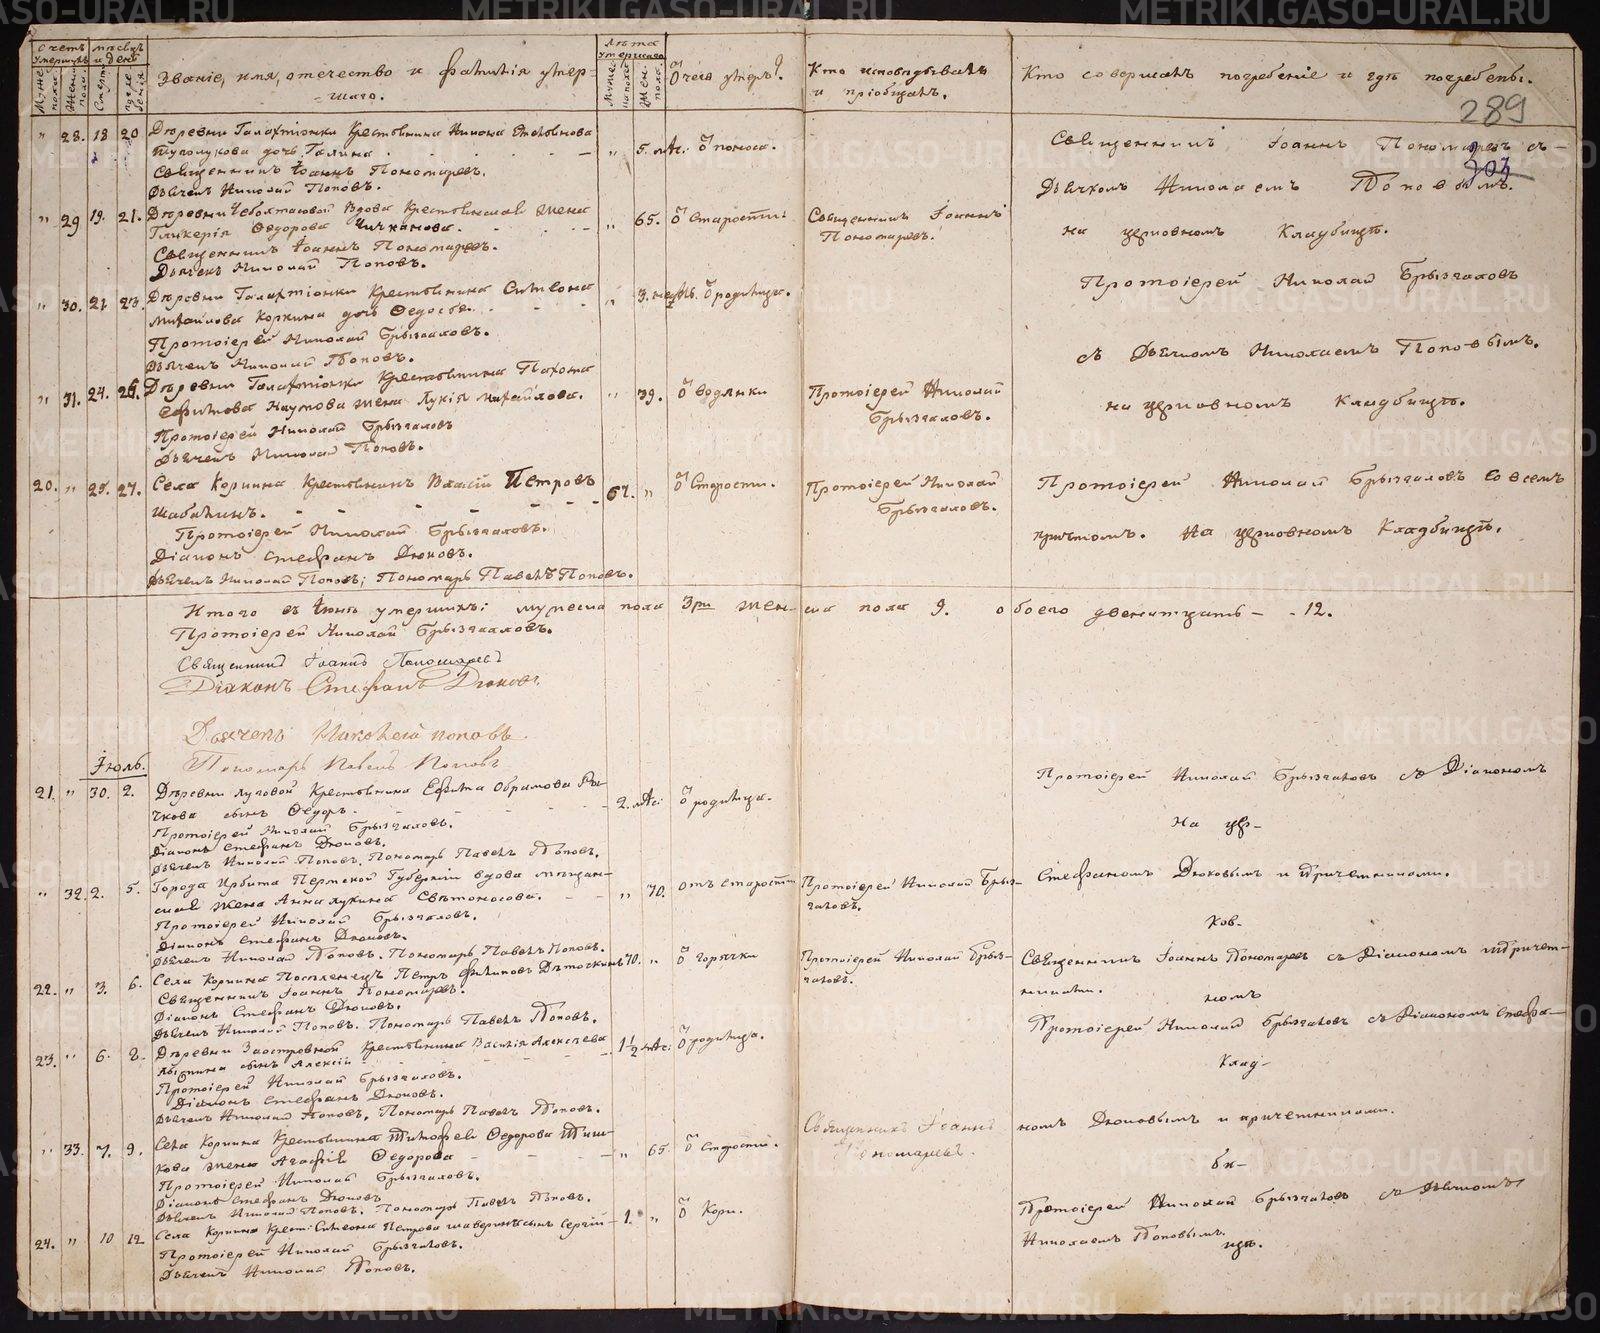 Счетъ умершихъ
Мѣсяцъ и день
Званіе, имя, отечество и фамилія умер-
шаго.
Лѣта умершаго
Отъ чего умеръ?
Кто исповѣдывалъ
и пріобщалъ.
Кто совершалъ погребеніе и гдѣ погребены.
289
" 28. 18 20 Деревни Галактіонки Крестьянина
дочь Галина " 5. мѣс. Ѿ поноса.
Священникъ Іоаннъ Пономаревъ.
Дьячекъ Николай Поповъ.
Священникъ Іоаннъ Пономаревъ съ
Дьячкомъ Николаемъ Поповымъ.
" 29 19. 21. Деревни Вдова Крестьянская жена
Гликерія Ѳедорова Чичканова. " 65. Ѿ Старости.
Священникъ Іоаннъ Пономаревъ.
Дьячекъ Николай Поповъ.
Священникъ Іоаннъ
Пономаревъ.
на церковномъ Кладбищѣ.
" 30. 21 23. Деревни Галактіонки Крестьянина Симеона
Михайлова Коркина дочь Ѳедосья. " 3. недѣль. Ѿ родимца.
Протоіерей Николай Брызгаловъ.
Дьячекъ Николай Поповъ.
Протоіерей Николай Брызгаловъ
съ Дьячкомъ Николаемъ Поповымъ.
" 31. 24. 26. Деревни Галактіонки Крестьянина Пахома
Ефимова Наумова жена Лукія Михайлова. " 39. Ѿ водянки
Протоіерей Николай Брызгаловъ
Дьячекъ Николай Поповъ.
Протоіерей Николай
Брызгаловъ.
на церковномъ Кладбищѣ.
20. " 25. 27. Села Коркина Крестьянинъ Василій Петровъ
Шабалинъ. 67. " Ѿ Старости.
Протоіерей Николай Брызгаловъ.
Діаконъ Стефанъ Дюковъ.
Дьячекъ Николай Поповъ; Пономарь Павелъ Поповъ.
Протоіерей Николай
Брызгаловъ.
Протоіерей Николай Брызгаловъ со всемъ
причтомъ. На церковномъ Кладбищѣ.
Итого въ Іюнѣ умершихъ: мужеска пола 3ри жен-ска пола 9. обоего двенатцать - 12.
Протоіерей Николай Брызгаловъ.
Священникъ Іоаннъ Пономаревъ
Діаконъ Стефанъ Дюковъ.
Дьячекъ Николай Поповъ.
Пономарь Павелъ Поповъ
Іюль.
21. " 30. 2. Деревни Луговой Крестьянина Ефима Обрамова Ры-
чкова сынъ Ѳедоръ. 2. мѣс: Ѿ родимца.
Протоіерей Николай Брызгаловъ.
Діаконъ Стефанъ Дюковъ.
Дьячекъ Николай Поповъ. Пономарь Павелъ Поповъ.
Протоіерей Николай Брызгаловъ съ Діакономъ
На цер-
" 32. 2. 5. Города Ирбита Пермской Губерніи вдова мѣщан-
ская жена Анна Лукина Свѣтоносова. " 70. отъ старости
Протоіерей Николай Брызгаловъ.
Діаконъ Стефанъ Дюковъ.
Дьячекъ Николай Поповъ. Пономарь Павелъ Поповъ.
Протоіерей Николай Брыз-
галовъ.
Стефаномъ Дюковымъ и Причетниками.
ков-
22. " 3. 6. Села Коркина Поселенецъ Петръ Филиповъ 70. " Ѿ горячки
Священникъ Іоаннъ Пономаревъ.
Діаконъ Стефанъ Дюковъ.
Дьячекъ Николай Поповъ. Пономарь Павелъ Поповъ.
Протоіерей Николай Брыз-
галовъ.
Священникъ Іоаннъ Пономаревъ съ Діакономъ и Причет-
никами.
номъ
23. " 6. 8. Деревни Заостровной Крестьянина Василія Алексѣева
сынъ Алексій 1½ мѣс: Ѿ родимца.
Протоіерей Николай Брызгаловъ.
Діаконъ Стефанъ Дюковъ.
Дьячекъ Николай Поповъ. Пономарь Павелъ Поповъ.
Протоіерей Николай Брызгаловъ съ Діакономъ Стефа-
Клад-
номъ Дюковымъ и причетниками.
" 33. 7. 9. Села Коркина Крестьянина Тимофея Ѳедорова Тиш-
кова жена Агафія Ѳедорова " 65. Ѿ Старости.
Протоіерей Николай Брызгаловъ.
Діаконъ Стефанъ Дюковъ
Дьячекъ Николай Поповъ. Пономарь Павелъ Поповъ.
Священникъ Іоаннъ
Пономаревъ.
би-
24. " 10 12 Села Коркина Крест: Симеона Петрова сынъ Сергій 1. " Ѿ Кори.
Протоіерей Николай Брызгаловъ.
Дьячекъ Николай Поповъ.
Протоіерей Николай Брызгаловъ съ Дьячкомъ
Николаемъ Поповымъ.
щѣ.
METRIKI.GASO-URAL.RU